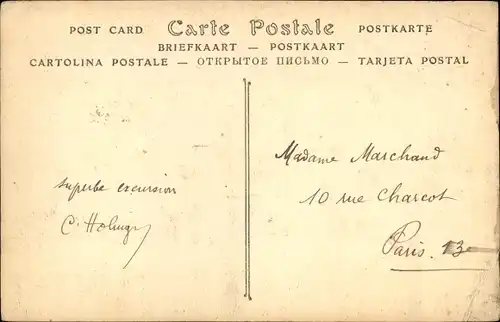 POST CARD Carte Postale POSTKARTE
BRIEFKAART — POSTKAART
CARTOLINA POSTALE — ОТКРЫТОЕ ПИСЬМО — TARJETA POSTAL
superbe excursion
C.
Madame Marchand
10 rue Charcot
Paris. 13e